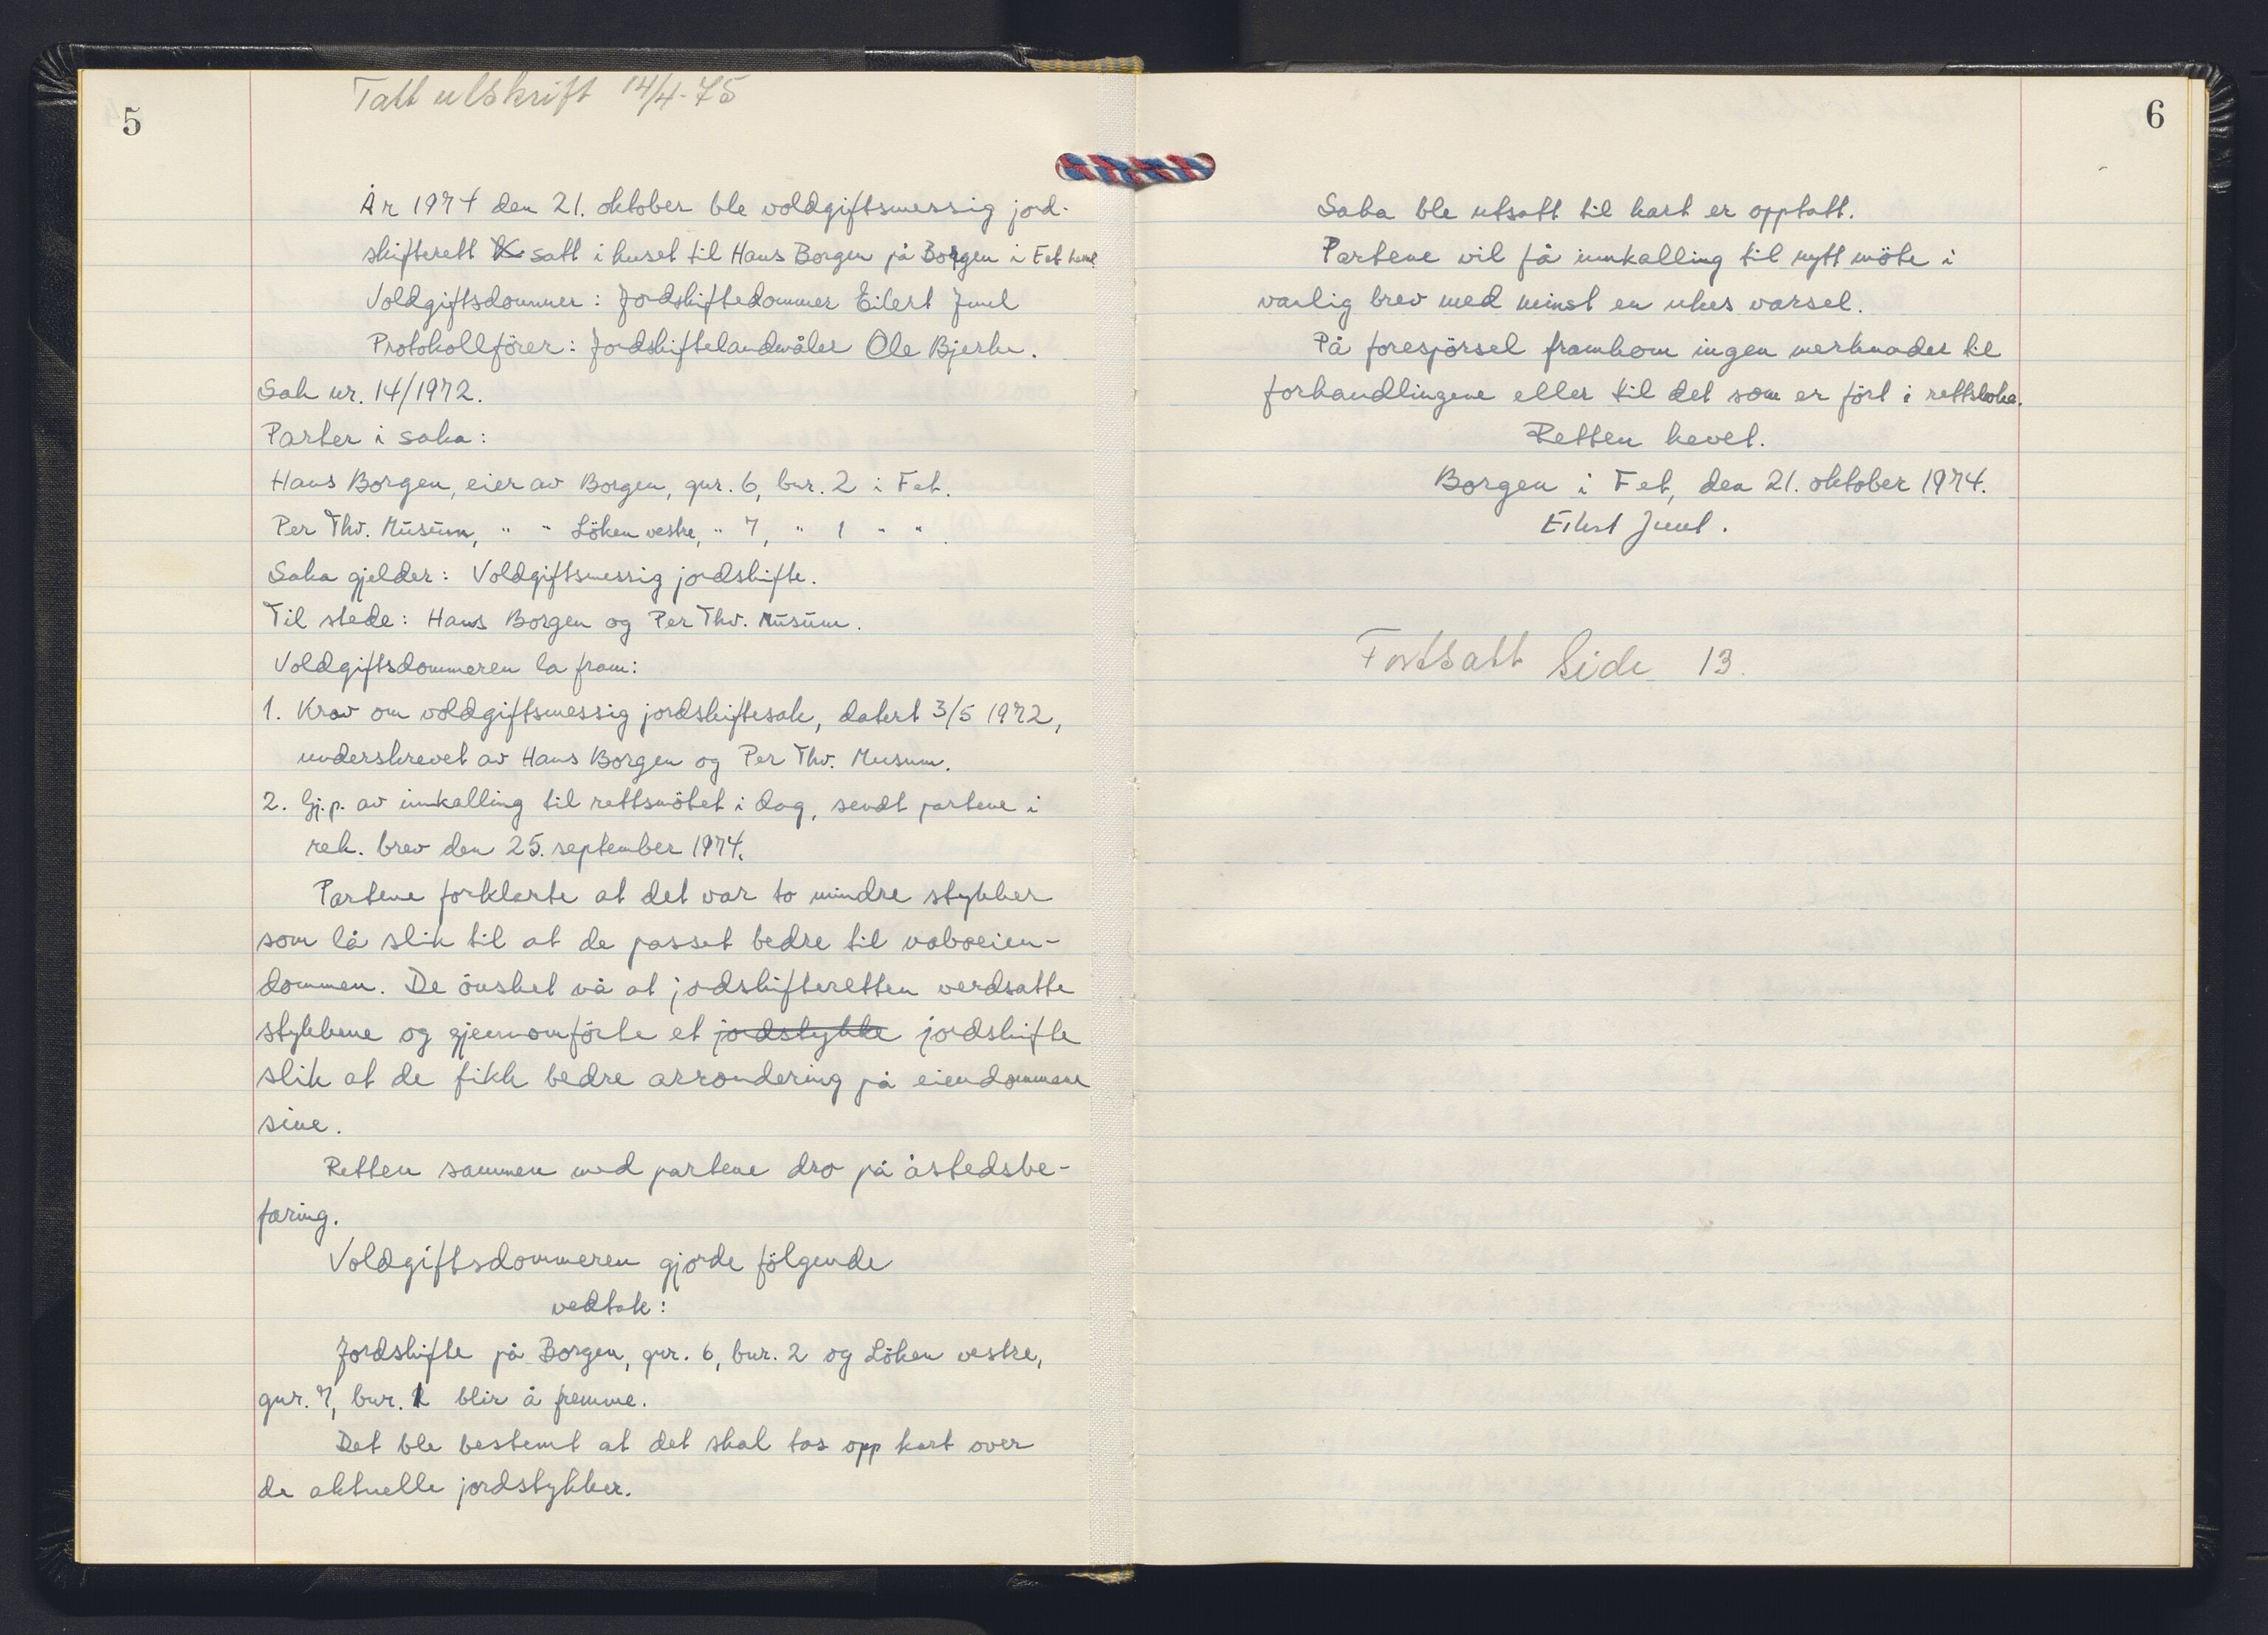 5
Tatt utskrift 14/4-75
År 1974 den 21. oktober ble voldgiftsmessig jord-
skifterett satt i huset til Hans Borgen på Borgen i Fet
Voldgiftsdommer: Jordskiftedommer Eilert Juul
Protokollförer: Jordskiftelandmåler Ole Bjerke.
Sak nr. 14/1972.
Parter i saka:
Hans Borgen, eier av Borgen, gnr. 6, bnr. 2 i Fet.
Per Thv. Musum, " " Löken vestre, " 7, " 1 " " .
Saka gjelder: Voldgiftsmessig jordskifte.
Til stede: Hans Borgen og Per Thv. Musum.
Voldgiftsdommeren la fram:
1. Krav om voldgiftsmessig jordskiftesak, datert 3/5 1972,
underskrevet av Hans Borgen og Per Thv. Musum.
2. Gj.p. av innkalling til rettsmötet i dag, sendt partene i
rek. brev den 25. september 1974.
Partene forklarte at det var to mindre stykker
som lå slik til at de passet bedre til naboeien-
dommen. De önsket nå at jordskifteretten verdsatte
stykkene og gjennomförte et jordstykke jordskifte
slik at de fikk bedre arrondering på eiendommene
sine.
Retten sammen med partene dro på åstedsbe-
faring.
Voldgiftsdommeren gjorde fölgende
vedtak:
Jordskifte på Borgen, gnr. 6, bnr. 2 og Löken vestre,
gnr. 7, bnr. 1 blir å fremme.
Det ble bestemt at det skal tas opp kart over
de aktuelle jordstykker.
6
Saka ble utsatt til kart er opptatt.
Partene vil få innkalling til nytt möte i
vanlig brev med minst en ukes varsel.
På forespörsel framkom ingen merknader til
forhandlingene eller til det som er fört i rettsboka.
Retten hevet.
Borgen i Fet, den 21. oktober 1974.
Eilert Juul.
Fortsatt Side 13.